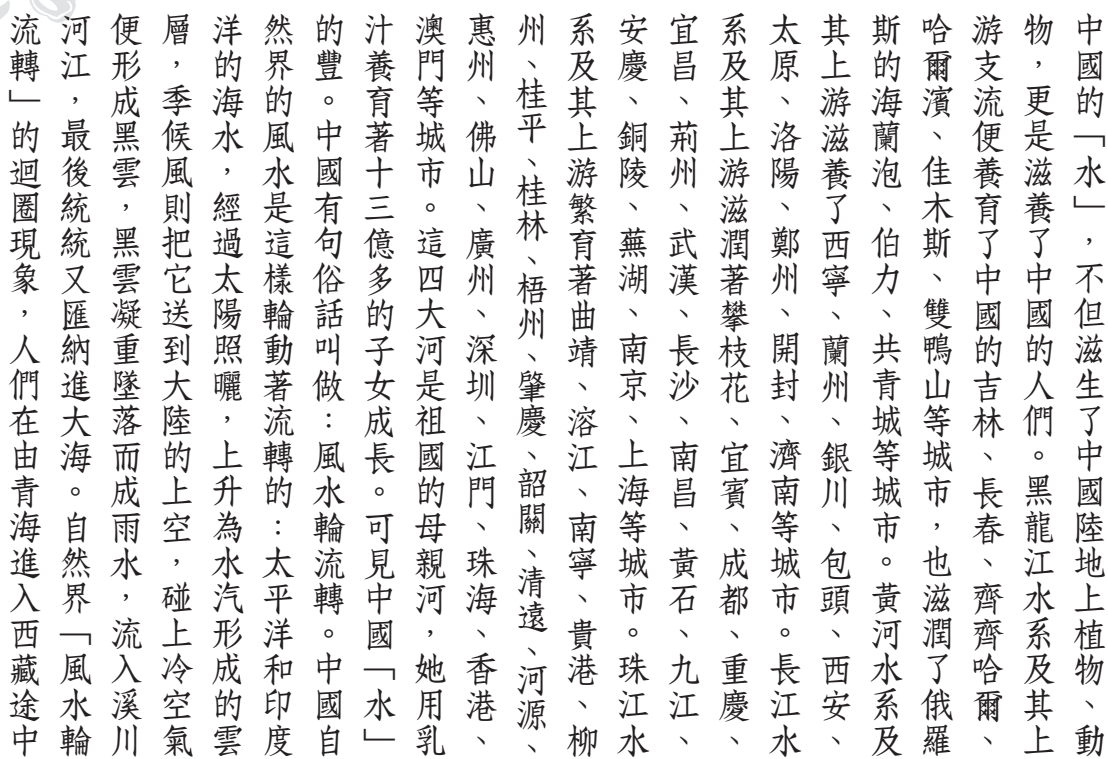 中國的「水」，不但滋生了中國陸地上植物、動
物，更是滋養了中國的人們。黑龍江水系及其上
游支流便養育了中國的吉林、長春、齊齊哈爾、
哈爾濱、佳木斯、雙鴨山等城市，也滋潤了俄羅
斯的海蘭泡、伯力、共青城等城市。黃河水系及
其上游滋養了西寧、蘭州、銀川、包頭、西安、
太原、洛陽、鄭州、開封、濟南等城市。長江水
系及其上游滋潤著攀枝花、宜賓、成都、重慶、
宜昌、荊州、武漢、長沙、南昌、黃石、九江、
安慶、銅陵、蕪湖、南京、上海等城市。珠江水
系及其上游繁育著曲靖、溶江、南寧、貴港、柳
州、桂平、桂林、梧州、肇慶、韶關、清遠、河源、
惠州、佛山、廣州、深圳、江門、珠海、香港、
澳門等城市。這四大河是祖國的母親河，她用乳
汁養育著十三億多的子女成長。可見中國「水」
的豐。中國有句俗話叫做：風水輪流轉。中國自
然界的風水是這樣輪動著流轉的：太平洋和印度
洋的海水，經過太陽照曬，上升為水汽形成的雲
層，季候風則把它送到大陸的上空，碰上冷空氣
便形成黑雲，黑雲凝重墜落而成雨水，流入溪川
河江，最後統統又匯納進大海。自然界「風水輪
流轉」的迴圈現象，人們在由青海進入西藏途中